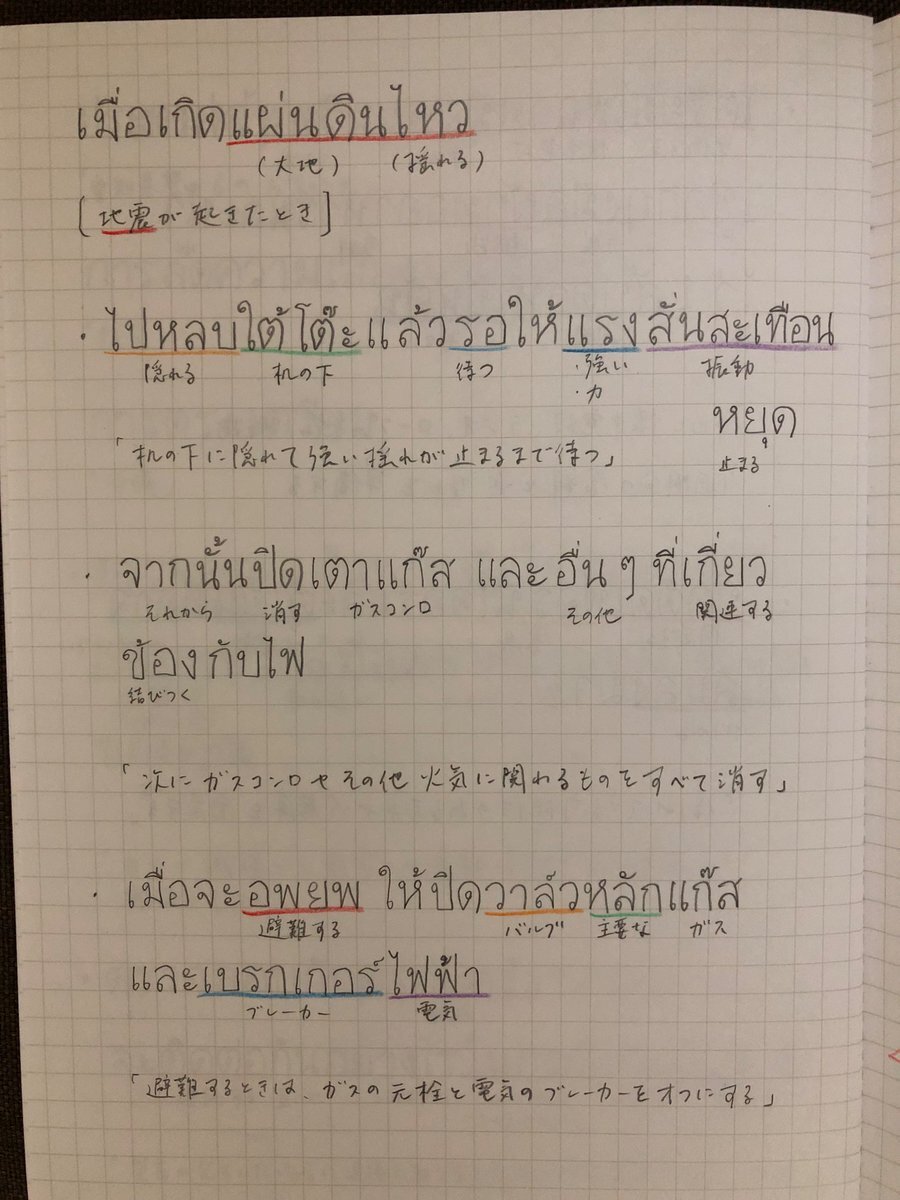 เมื่อเกิดแผ่นดินไหว
(大地) (揺れる)
[地震が起きたとき]
・ไปหลบใต้โต๊ะแล้วรอให้แรงสั่นสะเทือน
隠れる 机の下 待つ ・強い 振動
・力
หยุด
止まる
「机の下に隠れて強い揺れが止まるまで待つ」
・จากนั้นปิดเตาแก๊ส และอื่นๆ ที่เกี่ยว
それから 消す ガスコンロ その他 関連する
ข้องกับไฟ
結びつく
「次にガスコンロやその他火気に関わるものをすべて消す」
・เมื่อจะอพยพ ให้ปิดวาล์วหลักแก๊ส
避難する バルブ 主要な ガス
และเบรกเกอร์ไฟฟ้า
ブレーカー 電気
「避難するときは、ガスの元栓と電気のブレーカーをオフにする」